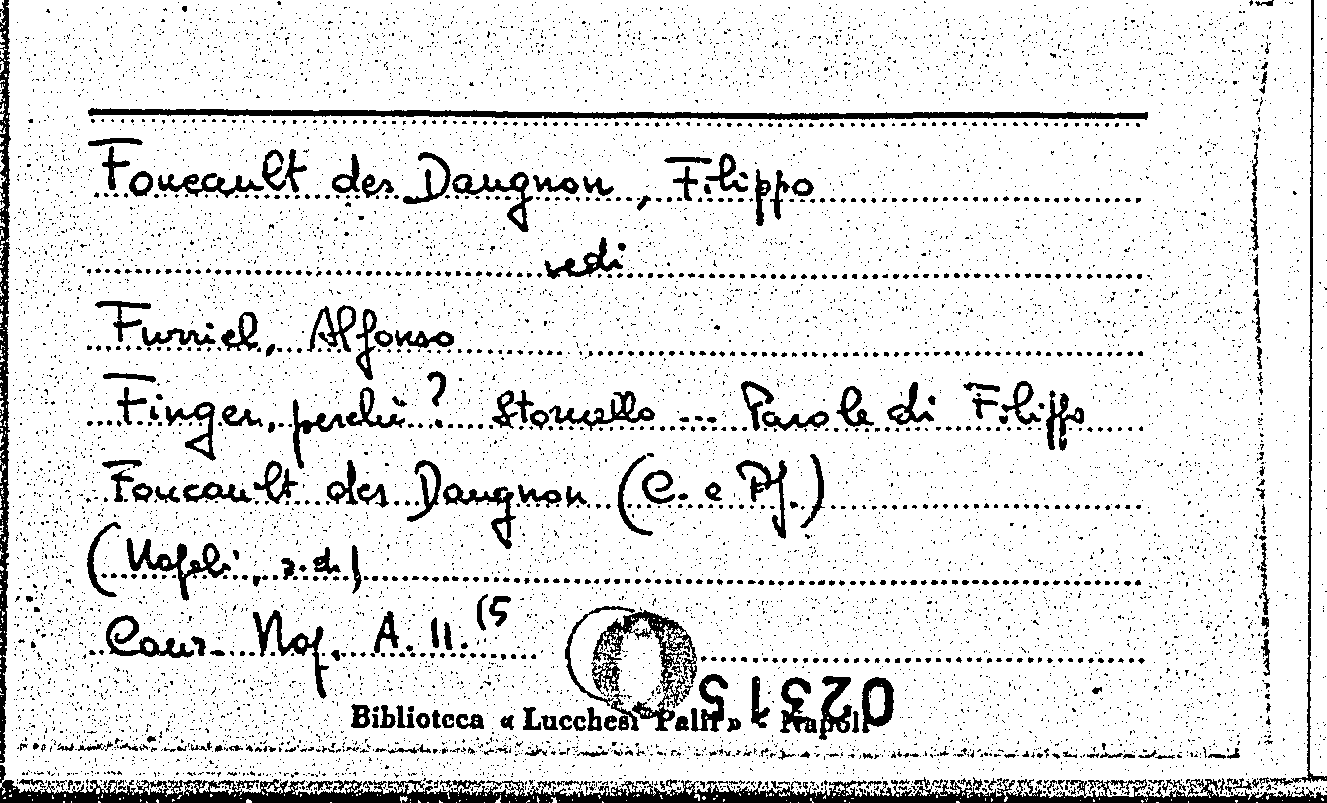 Foucault des Daugnon, Filippo
vedi
Furriel, Alfonso
Finger, perchè? Stornello ... Parole di Filippo
Foucault des Daugnon (C. e Pf.)
(Napoli, s.d.)
Canz. Nap. A. II. (5
02315
Biblioteca « Lucchesi Palli » - Napoli